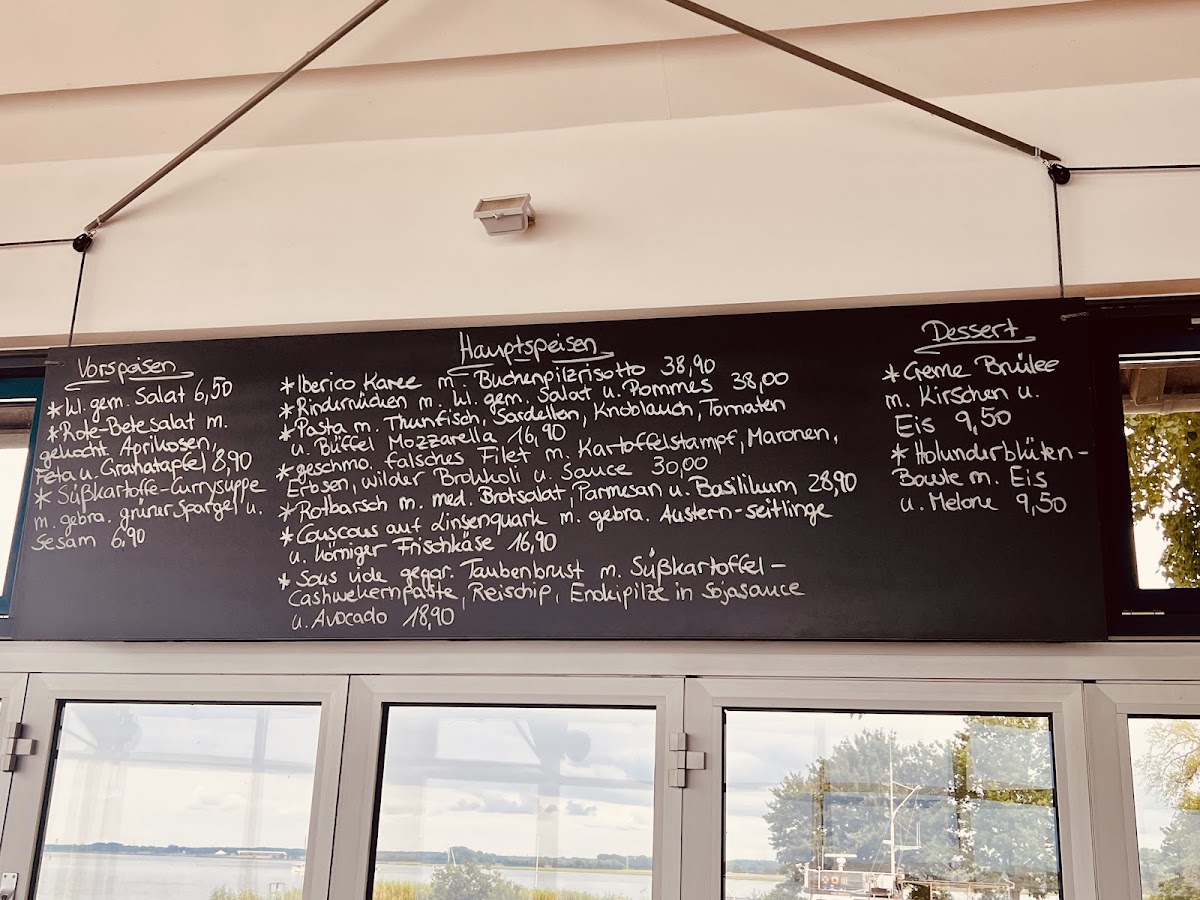 Vorspeisen
*kl. gem. Salat 6,50
*Rote-Bete Salat m.
gekocht. Aprikosen,
Feta u. Granatapfel 8,90
* Süßkartoffe-Currysuppe
m. gebra. grüner Spargel u.
Sesam 6,90
Hauptspeisen
*Iberico Karee m. Buchenpilzrisotto 38,90
*Rinderrücken m. kl. gem. Salat u. Pommes 38,00
*Pasta m. Thunfisch, Sardellen, Knoblauch, Tomaten
u. Büffel Mozzarella 16,90
*geschmo. falsches Filet m. Kartoffelstampf, Maronen,
Erbsen, wilder Brokkoli u. Sauce 30,00
*Rotbarsch m. med. Brotsalat, Parmesan u. Basilikum 28,90
*Couscous auf Linsenquark m. gebra. Austern-seitlinge
u. körniger Frischkäse 16,90
* Sous vide gegar. Taubenbrust m. Süßkartoffel-
Cashwekernpaste, Reischip, Enokipilze in Sojasauce
u. Avocado 18,90
Dessert
*Creme Brûlee
m. Kirschen u.
Eis 9,50
*Holunderblüten-
Bowle m. Eis
u. Melone 9,50